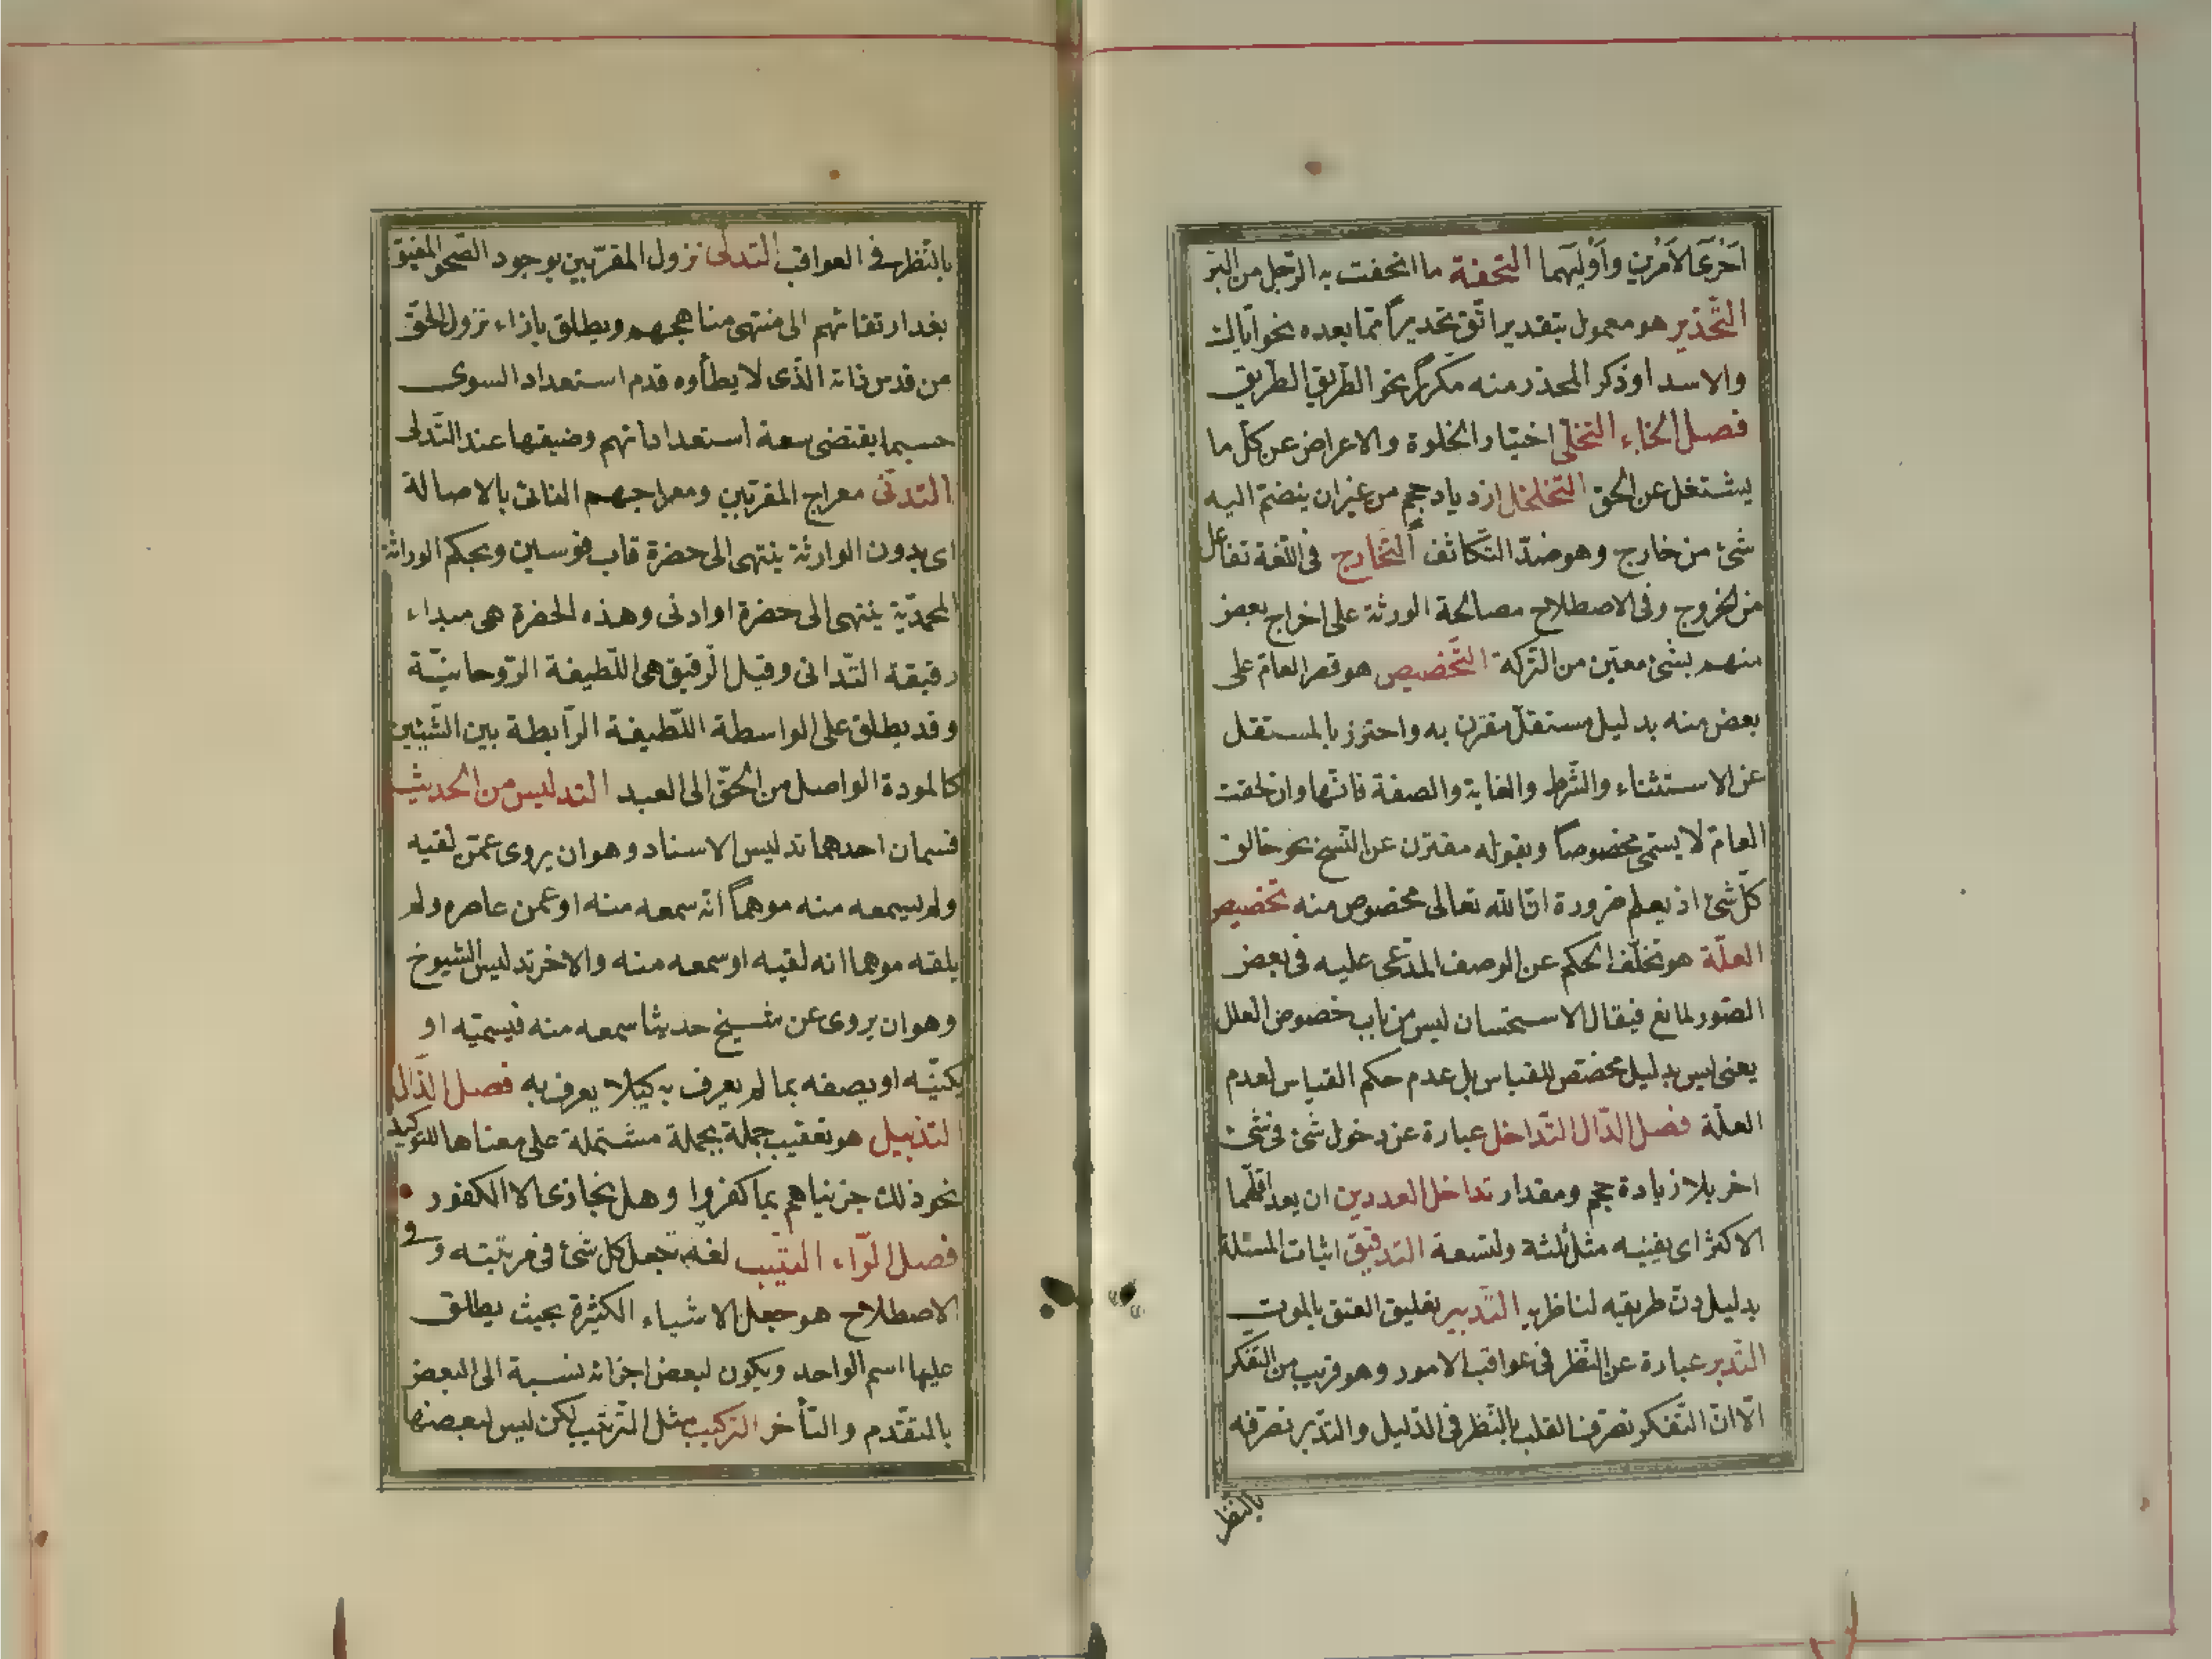 احرى الامرين واوليهما التحفة ما اتحفت به الرجل من البر
التحذير هو معمول بتقدير اتق تحذيرا مما بعده نحو اياك
والاسد او ذكر المحذر منه مكررا نحو الطريق الطريق
فصل الخاء التخلي اختيار الخلوة والاعراض عن كل ما
يشتغل عن الحق التخلخل ازدياد حجم من غيران ينضم اليه
شئ من خارج وهو ضد التكاثف التخارج فى اللغة تفاعل
من الخروج وفى الاصطلاح مصالحة الورثة على اخراج بعض
منهم بشئ معين من التركة التخصيص هو قصر العام على
بعض منه بدليل مستقل مقترن به واحترز بالمستقل
عن الاستثناء والشرط والغاية والصفة فانها وان لحقت
العام لا يسمى مخصوصا وبقوله مقترن عن النسخ نحو خالق
كل شئ اذ يعلم ضرورة ان الله تعالى مخصوص منه تخصيص
العلة هو تخلف الحكم عن الوصف المدعى عليه فى بعض
الصور لمانع فيقال الاستحسان ليس من باب خصوص العلل
يعنى ليس بدليل مخصص للقياس بل عدم حكم القياس لعدم
العلة فصل الدال التداخل عبارة عن دخول شئ فى شئ
اخر بلا زيادة حجم ومقدار تداخل العددين ان يعد اقلهما
الاكثر اى يفنيه مثل ثلثة وتسعة التدقيق اثبات المسئلة
بدليل دق طريقه لناظريه التدبير تعليق العتق بالموت
التدبر عبارة عن النظر فى عواقب الامور وهو قريب من التفكر
الا ان التفكر تصرف القلب بالنظر فى الدليل والتدبر تصرفه
بالنظر
بالنظر فى العواقب التدلى نزول المقربين بوجود الصحو المفيق
بعد ارتقائهم الى منتهى مناهجهم ويطلق بازاء نزول الحق
من قدس ذاته الذى لا يطأوه قدم استعداد السوى
حسبما يقتضى سعة استعداداتهم وضيقها عند التدلى
التدنى معراج المقربين ومعراجهم الغائى بالاصالة
اى بدون الوارثة ينتهى الى حضرة قاب قوسين وبحكم الوراثة
المحمدية ينتهى الى حضرة او ادنى وهذه الحضرة هى مبداء
رقيقة التدانى وقيل الرقيق هى اللطيفة الروحانية
وقد يطلق على الواسطة اللطيفة الرابطة بين الشيئين
كالمودة الواصل من الحق الى العبد التدليس من الحديث
قسمان احدهما تدليس الاسناد وهو ان يروى عمن لقيه
ولم يسمعه منه موهما انه سمعه منه او عمن عاصره ولم
يلقه موهما انه لقيه او سمعه منه والاخر تدليس الشيوخ
وهو ان يروى عن شيخ حديثا سمعه منه فيسميه او
يكنيه او يصفه بما لم يعرف به كيلا يعرف به فصل الذال
التذييل هو تعقيب جملة بجملة مشتملة على معناها للتوكيد
نحو ذلك جزيناهم بما كفروا وهل نجازى الا الكفور
فصل الراء الترتيب لغة جعل كل شئ فى مرتبته وفى
الاصطلاح هو جعل الاشياء الكثيرة بحيث يطلق
عليها اسم الواحد ويكون لبعض اجزائه نسبة الى البعض
بالتقدم والتأخر التركيب مثل الترتيب لكن ليس لبعضها